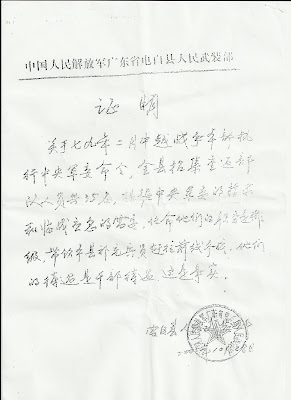 中国人民解放军广东省电白县人民武装部
证明
关于七九年二月中越战争本部执
行中央军委命令，全县招集专退部
队人员共 名，根据中央军委的指示
和临战应急的需要，任命他们的职务是排
级，带领本县补充兵员赴往前线参战，他们
的待遇是干部待遇，这是事实。
电白县人